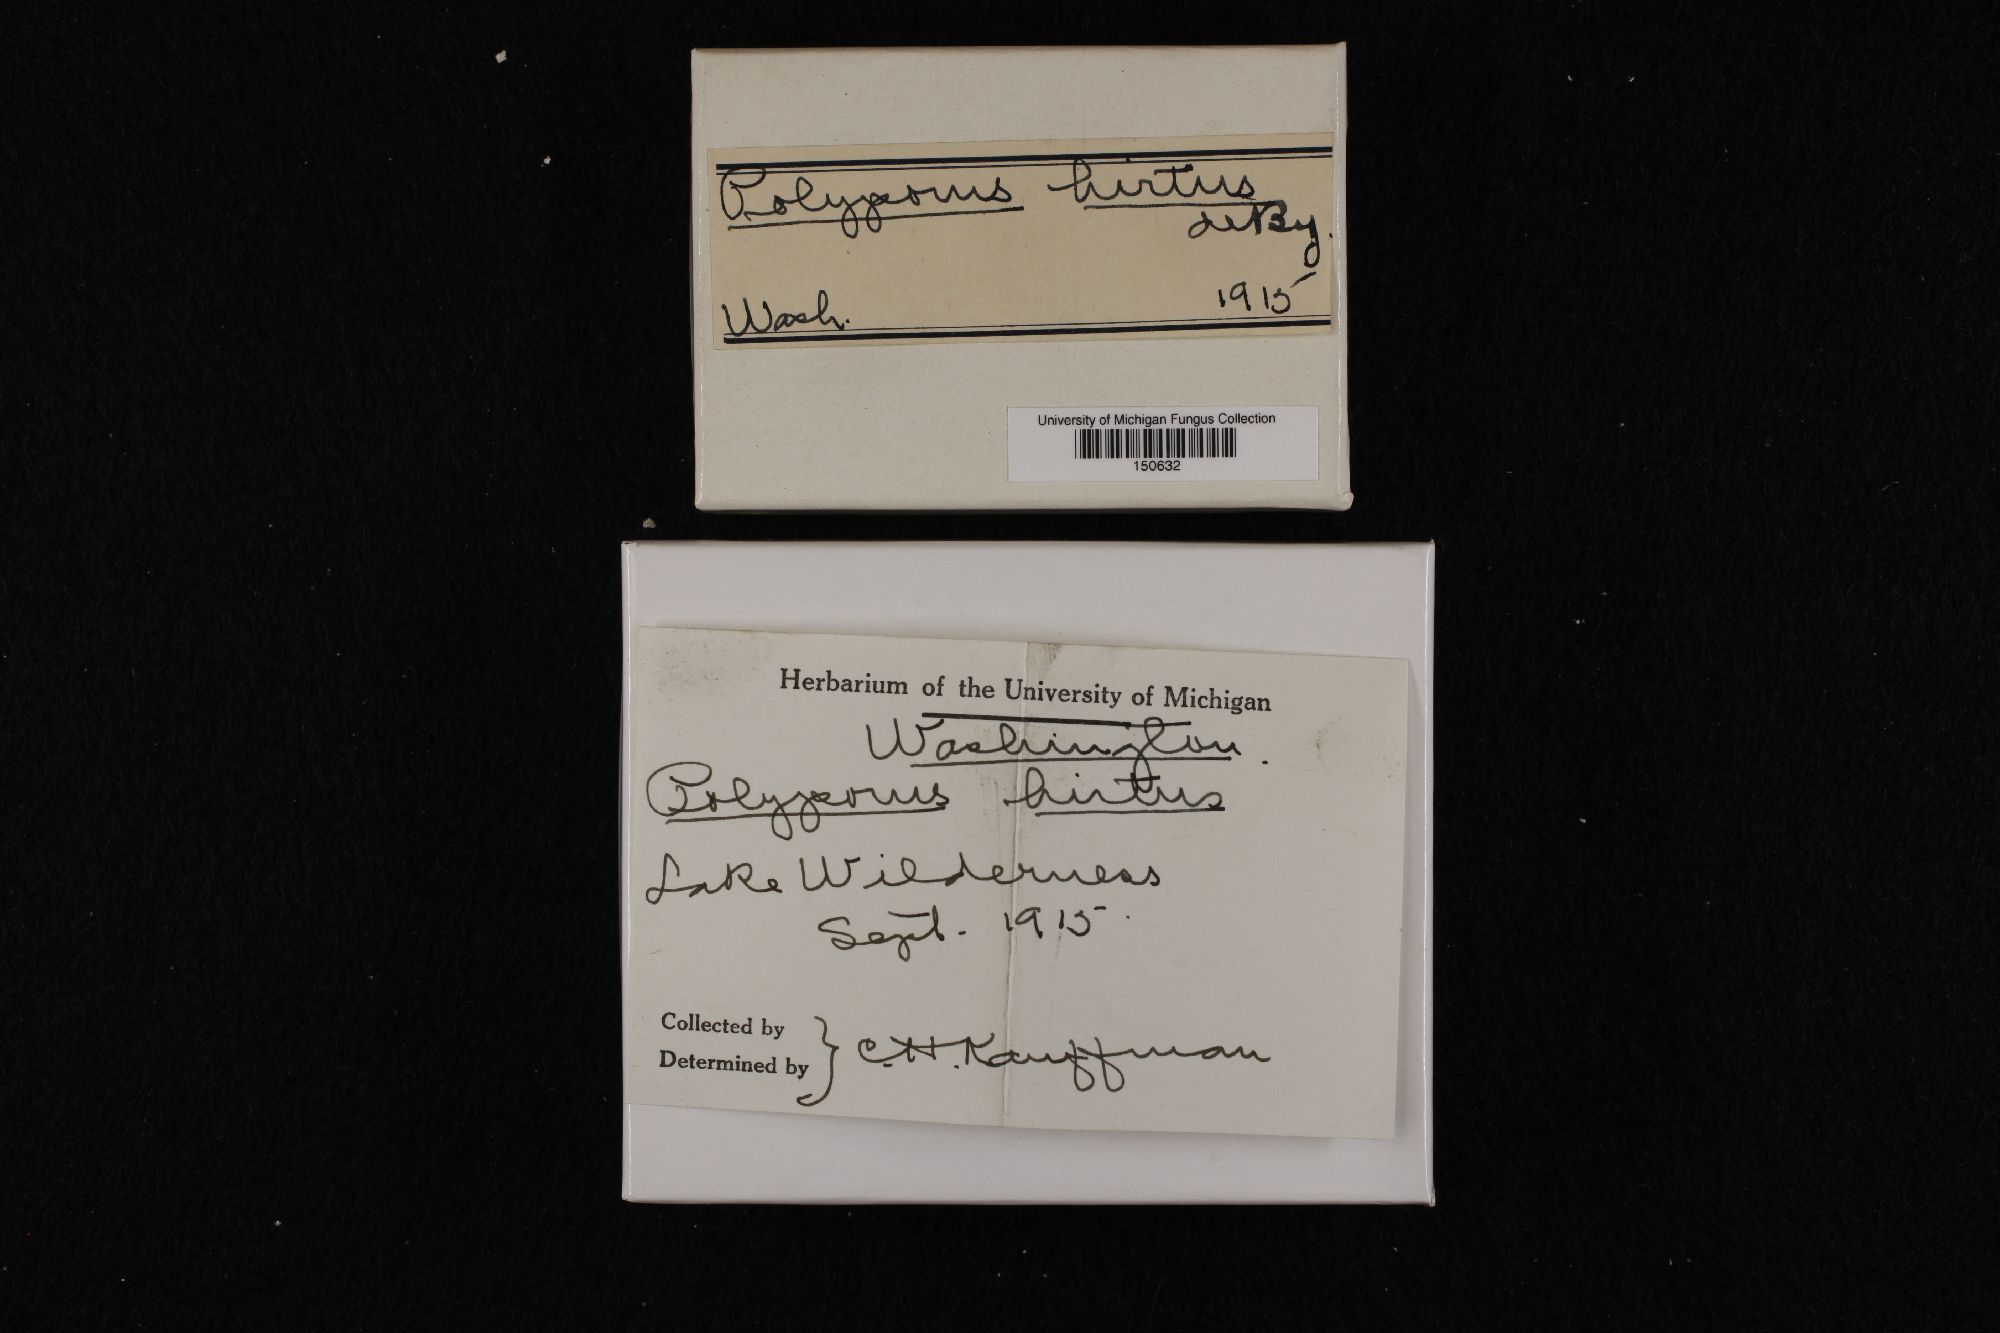 Polyporus hirtus
deBy.
Wash. 1915
University of Michigan Fungus Collection
150632
Herbarium of the University of Michigan
Washington.
Polyporus hirtus
Lake Wilderness
Sept. 1915.
Collected by
Determined by } C.H. Kauffman